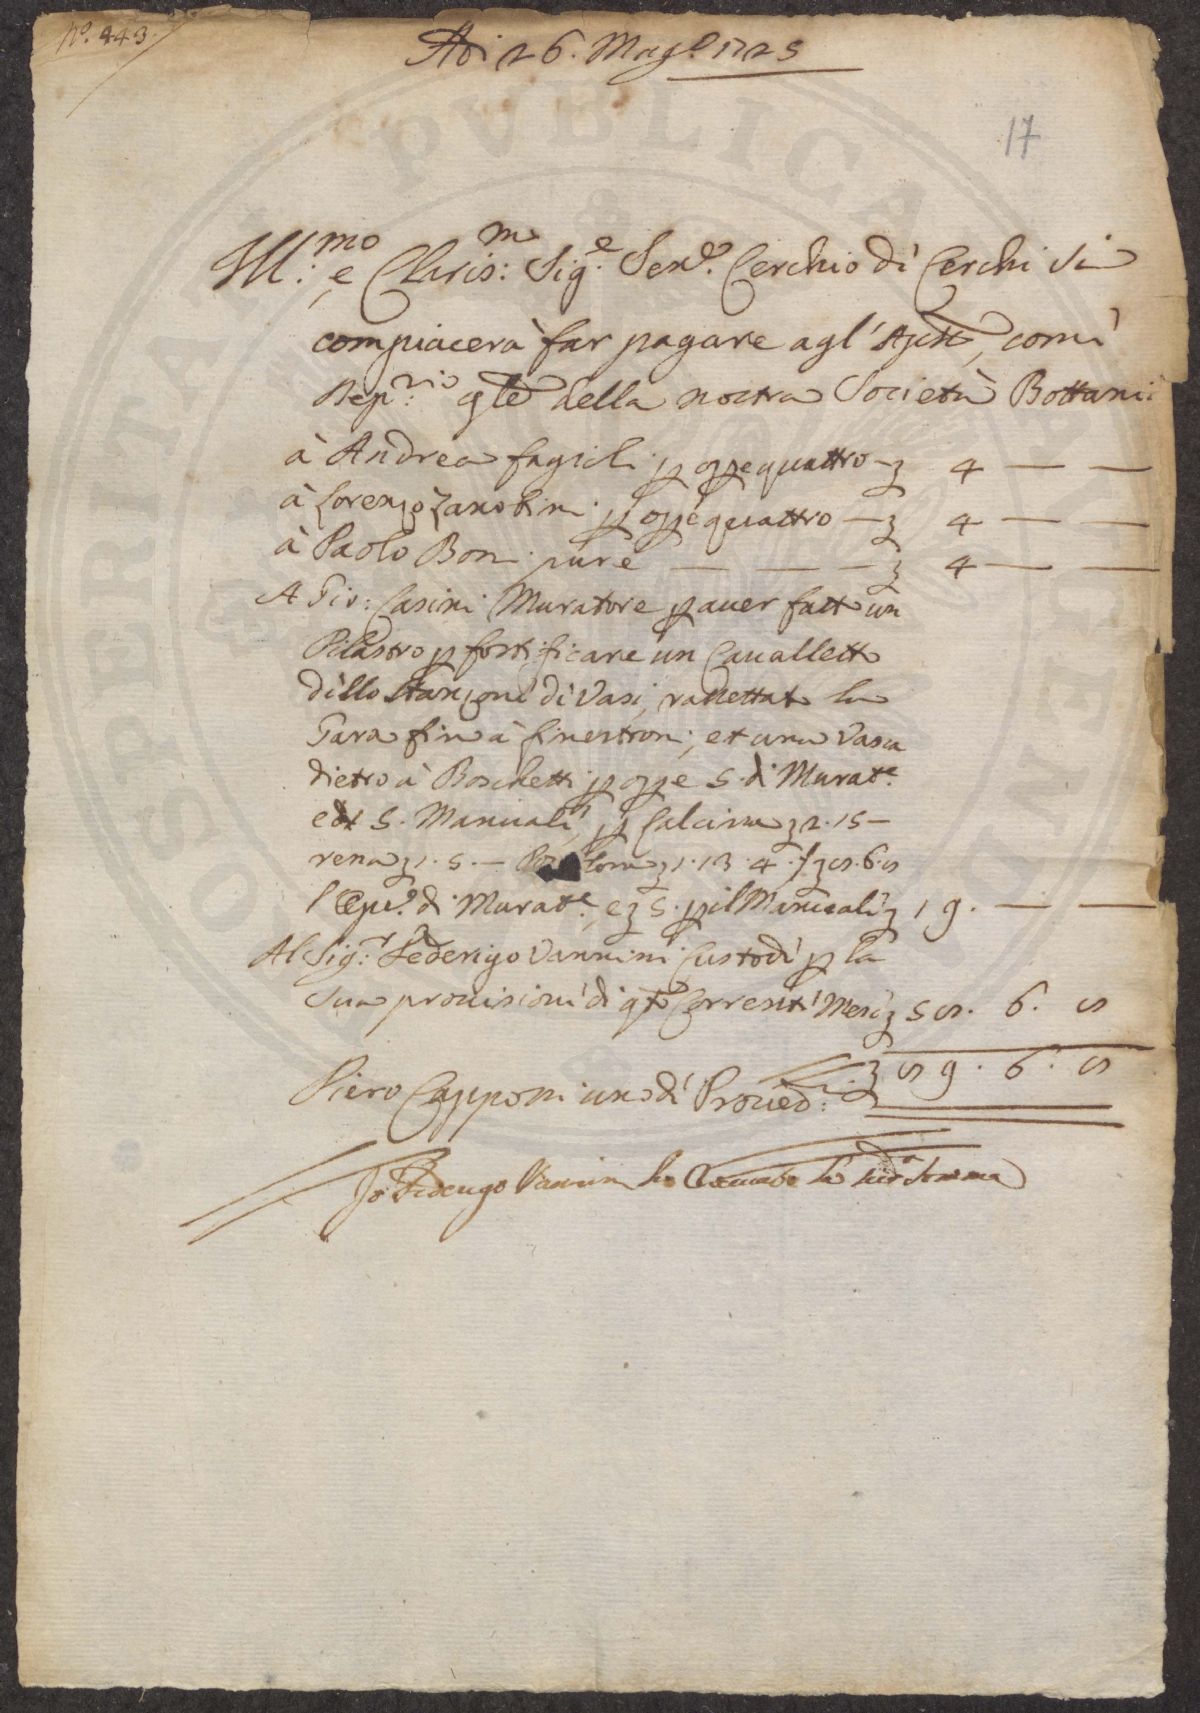 N.º 443.
Adi 26. Mag.º 1725
17
Ill.mo e Claris.mo Sig.e Sen.e Cerchio di Cerchi si
compiacerà far pagare agl'Apti, comé
Dep.rio gle della nostra Società Bottani:
à Andrea fagioli p opre quattro — 4 — —
à Lorenzo Zanobini p opre quattro — 4 — —
à Paolo Boni pure — — — 4 — —
A Gio: Casini Muratore p auer fatto un
Pilastro p fortificare un Caualletto
dello Stanzone di Vasi, rassettato la
Gara fino à finestroni, et una Vasca
dietro à Boschetti p opre 5. di Murat.e
et 5. Manuali, p Calcina 2. 15 —
rena 1. 5. — 1. 13. 4. 6.
l'Opre di Murat.e, e 5. p il Manuali 19. — —
Al Sig.r Federigo Vannini Custode p la
Sua prouisione di qto Corrente Mese 28. 6. 8
59. 6. 8
Piero Capponi uno di Proued.ri
Io Federigo Vannini ho riceuuto la sud.a somma